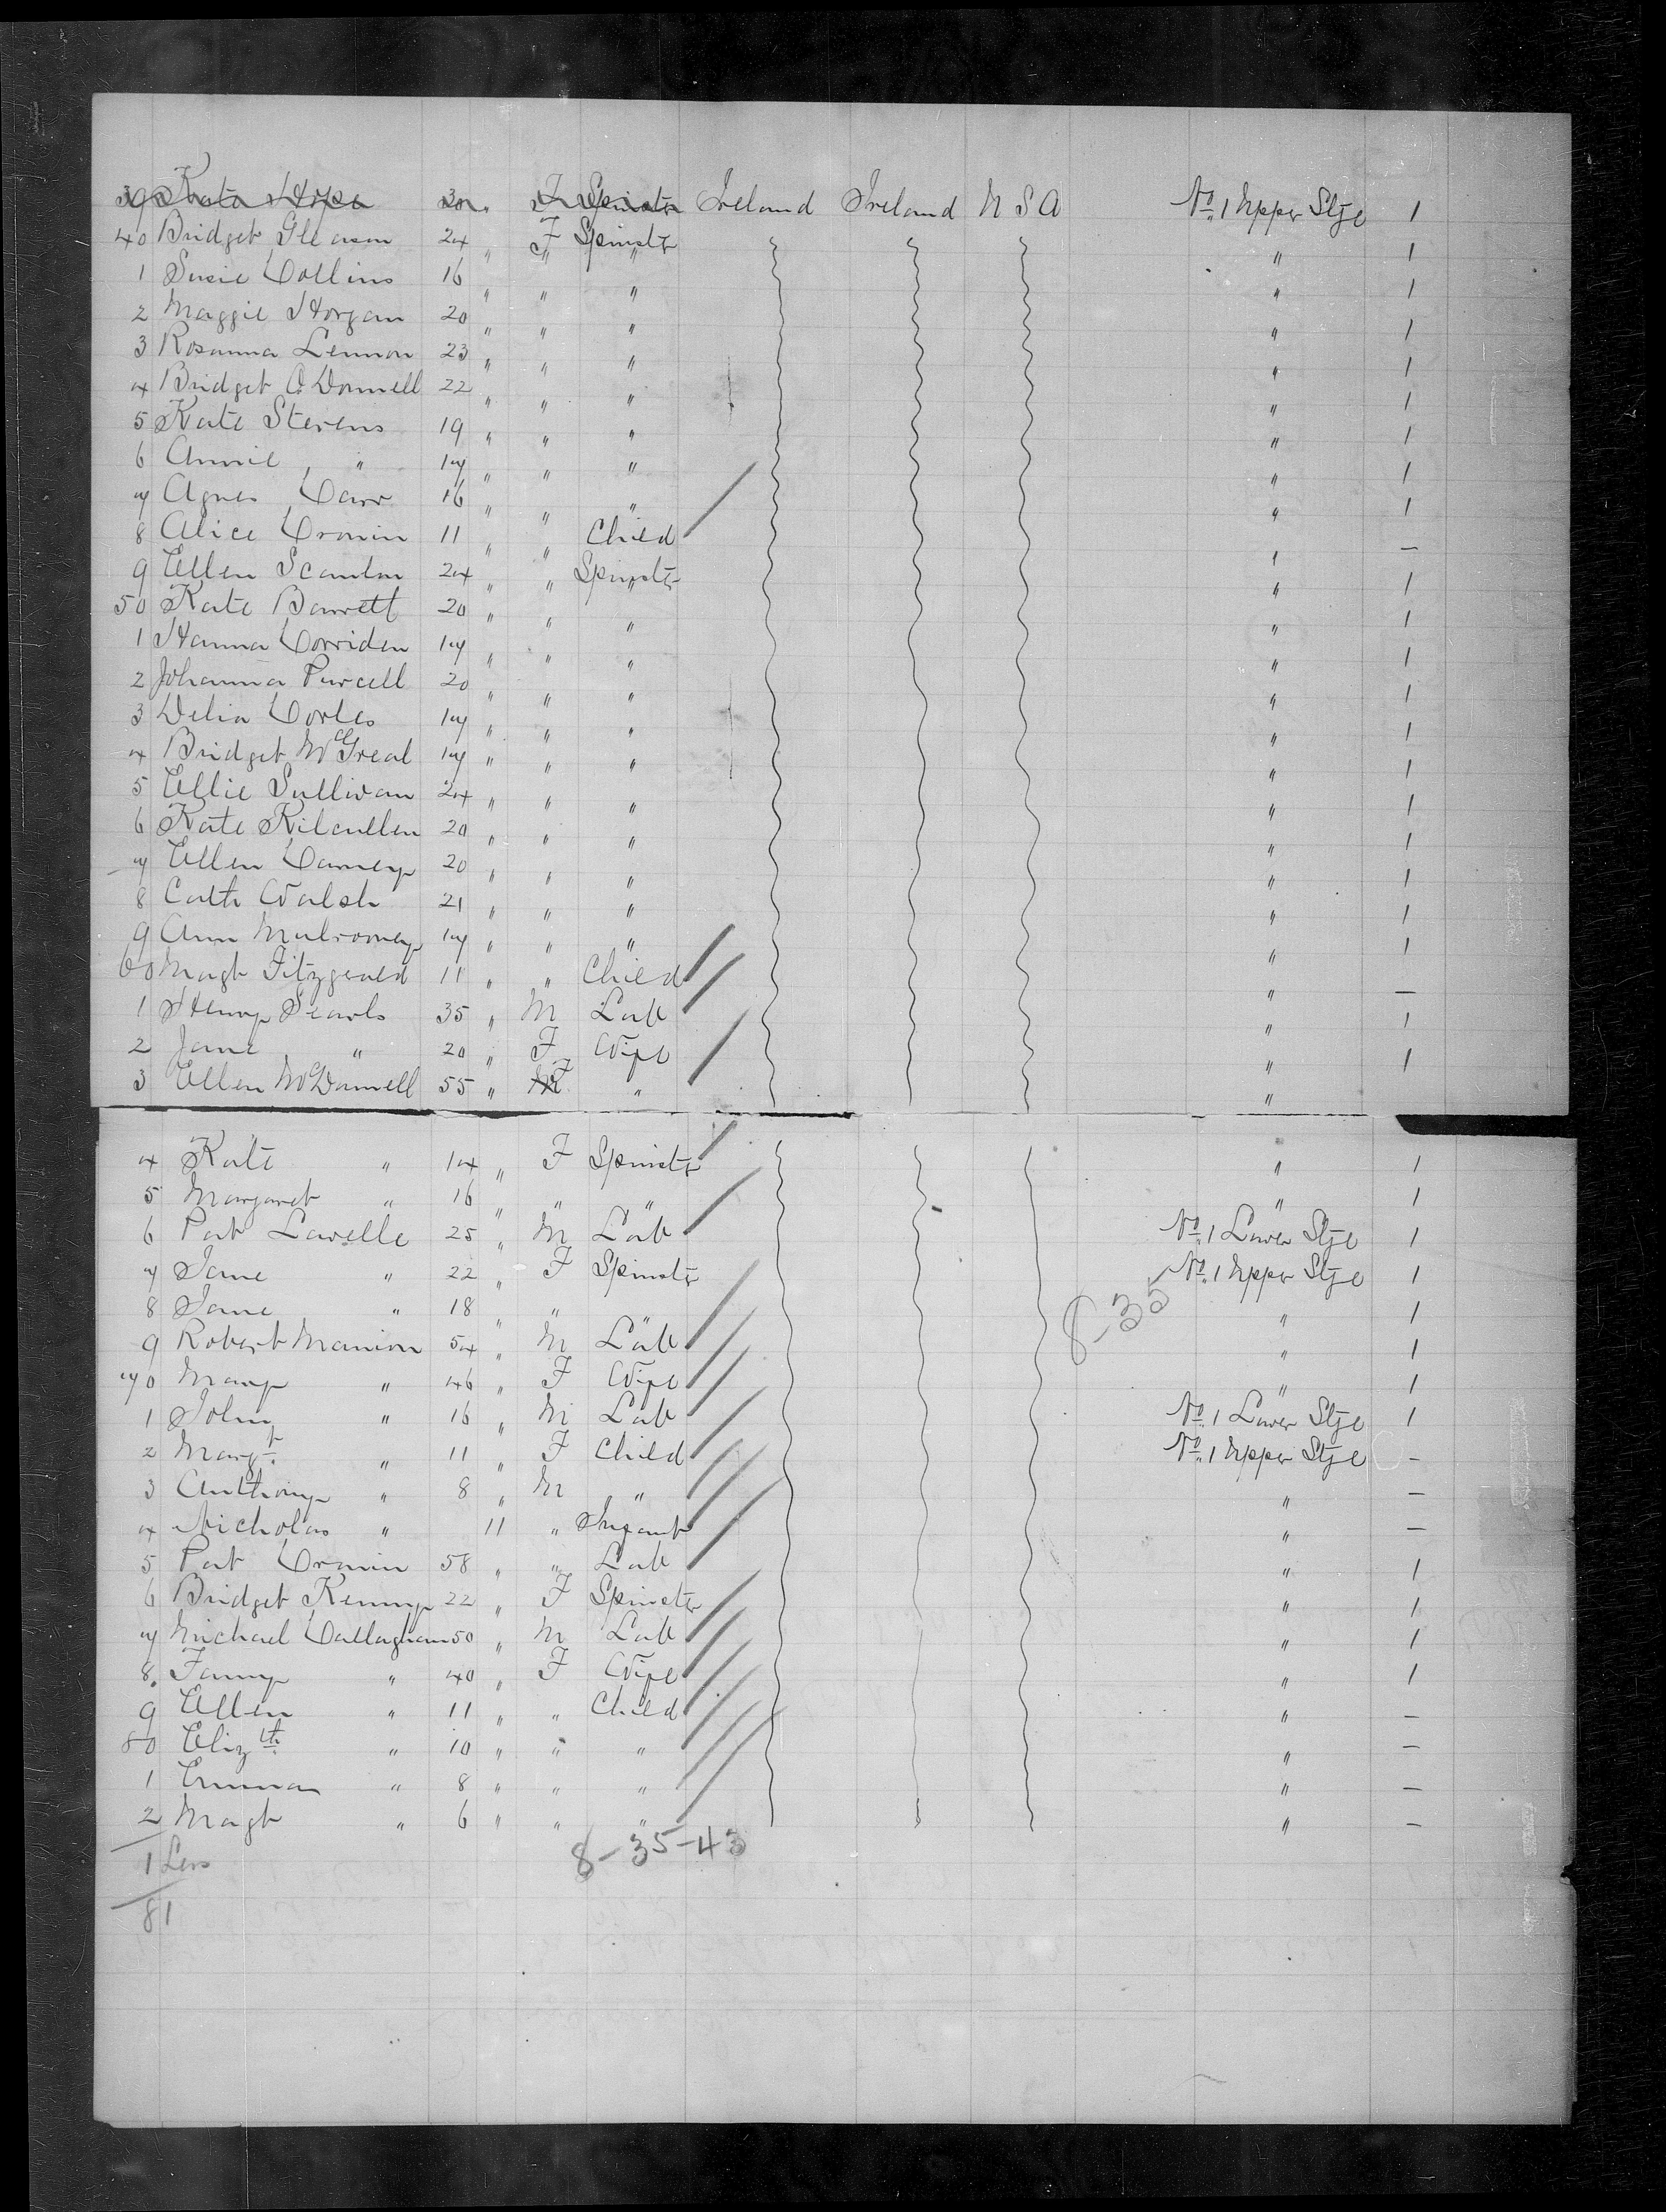 39 Kate Hope 20 " F Spinster Ireland Ireland U S A No. 1 Upper Stge 1
40 Bridget Gleason 24 " F Spinstr " 1
1 Susie Collins 16 " " " " 1
2 Maggie Horgan 20 " " " " 1
3 Rosanna Lennon 23 " " " " 1
4 Bridget O'Donnell 22 " " " " 1
5 Kate Stevens 19 " " " " 1
6 Annie " 17 " " " " 1
7 Agnes Carr 16 " " " " 1
8 Alice Cronin 11 " " Child " —
9 Ellen Scanlon 24 " " Spinstr " 1
50 Kate Barrett 20 " " " " 1
1 Hanna Corridon 17 " " " " 1
2 Johanna Purcell 20 " " " " 1
3 Delia Corles 17 " " " " 1
4 Bridget McGreal 17 " " " " 1
5 Ellie Sullivan 24 " " " " 1
6 Kate Kilcullen 20 " " " " 1
7 Ellen Carney 20 " " " " 1
8 Cath Walsh 21 " " " " 1
9 Ann Mulrooney 17 " " " " 1
60 Magt Fitzgerald 11 " " Child " —
1 Henry Searls 35 " M Lab " 1
2 Jane " 20 " F Wife " 1
3 Ellen McDonnell 55 " F " "
4 Kate " 14 " F Spinstr " 1
5 Margaret " 16 " " " " 1
6 Pat Lavelle 25 " M Lab No. 1 Lower Stge 1
7 Jane " 22 " F Spinstr No. 1 Upper Stge 1
8 Jane " 18 " " " " 1
8-35
9 Robert Manion 54 " M Lab " 1
70 Mary " 46 " F Wife " 1
1 John " 16 " M Lab No. 1 Lower Stge 1
2 Margt " 11 " F Child No. 1 Upper Stge —
3 Anthony " 8 " M " " —
4 Nicholas " 11 " Infant " —
5 Pat Cronin 58 " " Lab " 1
6 Bridget Kenny 22 " F Spinstr " 1
7 Michael Callaghan 50 " M Lab " 1
8 Fanny " 40 " F Wife " 1
9 Ellen " 11 " " Child " —
80 Elizth " 10 " " " " —
1 Emma " 8 " " " " —
2 Magt " 6 " " " " —
1 Less 8-35-43
81